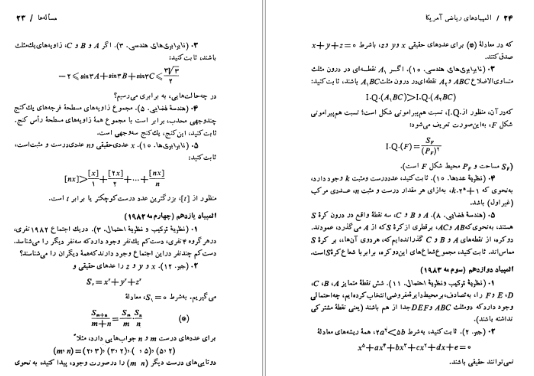 مسأله‌ها / ۲۳
۳. (نابرابری‌های هندسی. ۳). اگر A و B و C، زاویه‌های یک مثلث
باشند، ثابت کنید:
−۲ ≤ sin۳A + sin۳B + sin۳C ≤ ۳√۳/۲
در چه حالت‌هایی، به برابری می‌رسیم؟
۴. (هندسهٔ فضایی. ۵). مجموع زاویه‌های مسطحهٔ فرجه‌های یک کنج
چندوجهی محدب، برابر است با مجموع همهٔ زاویه‌های مسطحهٔ رأس کنج.
ثابت کنید، این کنج، یک کنج سه‌وجهی است.
۵. (نابرابری‌ها. ۱۵). x عددی حقیقی و n عددی درست و مثبت است.
ثابت کنید:
[nx] > [x]/۱ + [۲x]/۲ + ... + [nx]/n
منظور از [t]، بزرگترین عدد درست کوچکتر یا برابر t است.
المپیاد یازدهم (چهارم مه ۱۹۸۲)
۱. (نظریهٔ ترکیب و نظریهٔ احتمال. ۳). در یک اجتماع ۱۹۸۲ نفری،
در هر گروه ۴ نفری، دست‌کم یک نفر وجود دارد که سه نفر دیگر را می‌شناسد.
دست‌کم چند نفر در این اجتماع وجود دارند که همهٔ دیگران را می‌شناسند؟
۲. (جبر. ۱۲). x و y و z را عددهای حقیقی و
Sᵣ = xʳ + yʳ + zʳ
می‌گیریم. به شرط S₁ = ۰، معادلهٔ
(*) Sₘ₊ₙ/(m+n) = Sₘ/m · Sₙ/n
برای عددهای درست m و n جواب‌هایی دارد، مثلاً
(m، n) = (۲، ۳)، (۳، ۲)، (۲، ۵)، (۵، ۲)
دوتایی‌های درست دیگر (m، n) را در صورت وجود، پیدا کنید، به نحوی
۲۴ / المپیادهای ریاضی آمریکا
که در معادلهٔ (*) برای عددهای حقیقی x و y و z، با شرط x+y+z=۰
صدق کنند.
۳. (نابرابری‌های هندسی. ۱۰). اگر A₁ نقطه‌ای در درون مثلث
متساوی‌الاضلاع ABC و A₂ نقطه‌ای در درون مثلث A₁BC باشد، ثابت کنید:
I.Q.(A₁BC) > I.Q.(A₂BC)
که در آن، منظور از I.Q.، نسبت هم‌پیرامونی شکل است؛ نسبت هم‌پیرامونی
شکل F، به این صورت تعریف می‌شود:
I.Q.(F) = S_F/(P_F)²
(S_F مساحت و P_F محیط شکل F است).
۴. (نظریهٔ عددها. ۱۰). ثابت کنید، عدد درست و مثبت k وجود دارد،
به نحوی که k.۲ⁿ+۱، به ازای هر مقدار درست و مثبت n، عددی مرکب
(غیر اول) باشد.
۵. (هندسهٔ فضایی. ۸). A و B و C، سه نقطهٔ واقع در درون کرهٔ S
هستند، به نحوی که AB و AC، بر قطری از کرهٔ S که از A می‌گذرد، عمودند.
دو کره، از نقطه‌های A و B و C گذرانده‌ایم که، هر دوی آن‌ها، بر کرهٔ S
مماس‌اند. ثابت کنید، مجموع شعاع‌های این دو کره، برابر با شعاع کرهٔ S است.
المپیاد دوازدهم (سوم مه ۱۹۸۳)
۱. (نظریهٔ ترکیب و نظریهٔ احتمال. ۱۱). شش نقطهٔ متمایز A، B، C،
D، E و F را، به تصادف، بر محیط دایرهٔ مفروضی انتخاب کرده‌ایم، چه احتمالی
وجود دارد که دو مثلث ABC و DEF جدا از هم باشند (یعنی نقطهٔ مشترکی
نداشته باشند).
۲. (جبر. ۲). ثابت کنید، به شرط ۲a²<۵b، همهٔ ریشه‌های معادلهٔ
x⁵+ax⁴+bx³+cx²+dx+e=۰
نمی‌توانند حقیقی باشند.